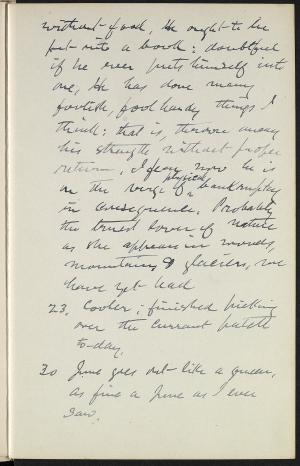 without food, He ought to be
put into a book: doubtful
if he ever puts himself into
one, He has done many
foolish, foolhardy things I
think: that is, thrown away
his strength without proper
return, I fear now he is
on the verge of physical bankruptcy
in consequence. Probably
the truest lover of nature
as she appears in woods,
mountains & glaciers, we
have yet had
23. Cooler; finished picking
over the currant patch
to-day.
30 June goes out like a queen,
as fine a June as I ever
saw.